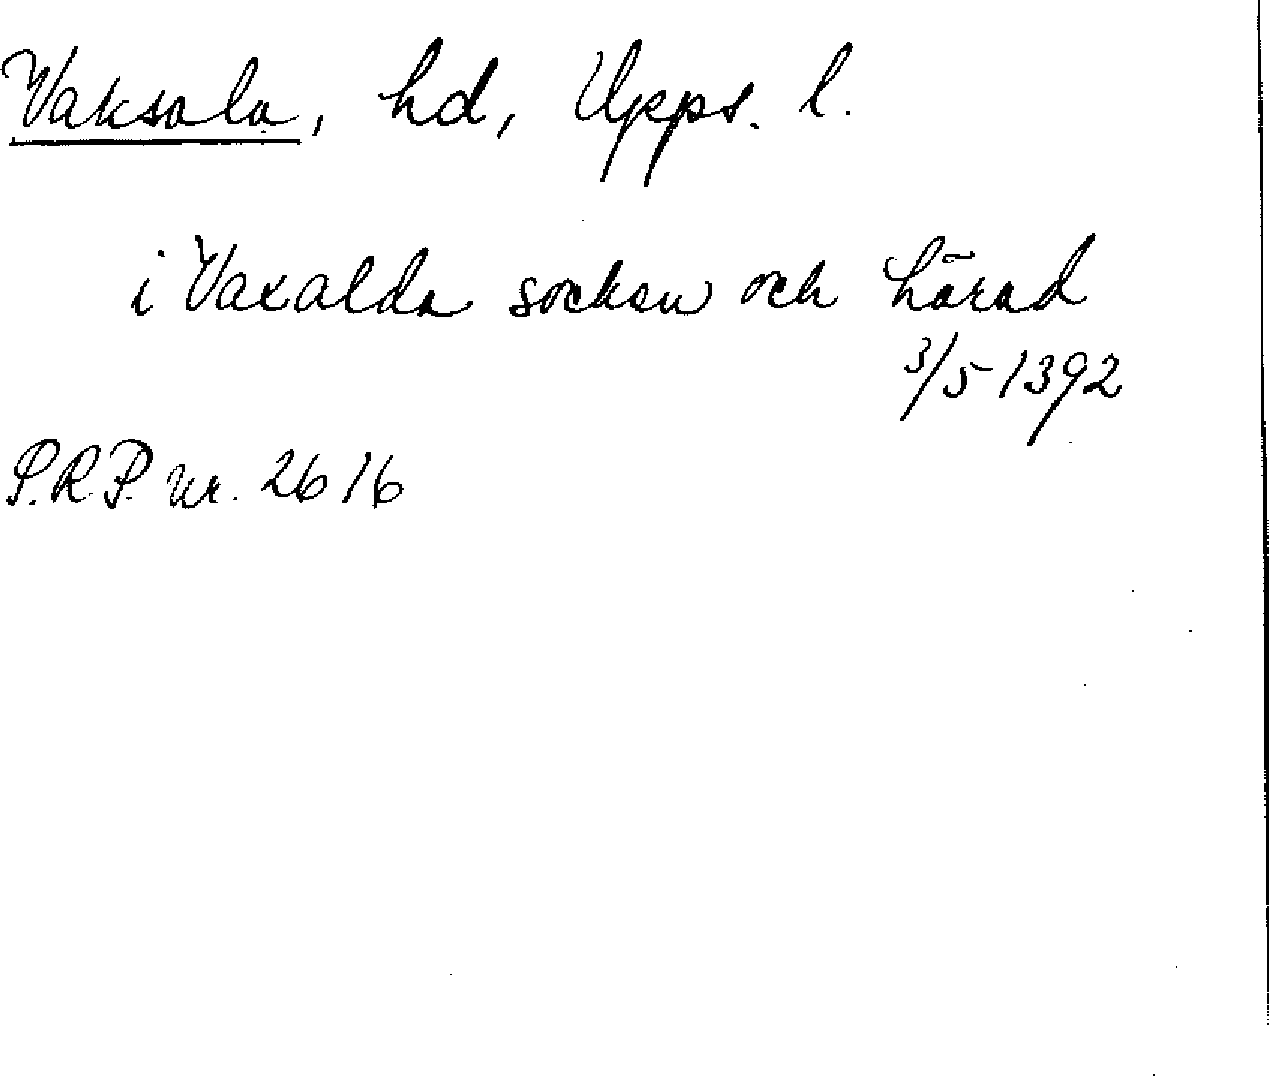 Vaksala, hd, Upps. l.
i Vaxalda socken och härad
3/5 1392
P.R.P. nr. 2616